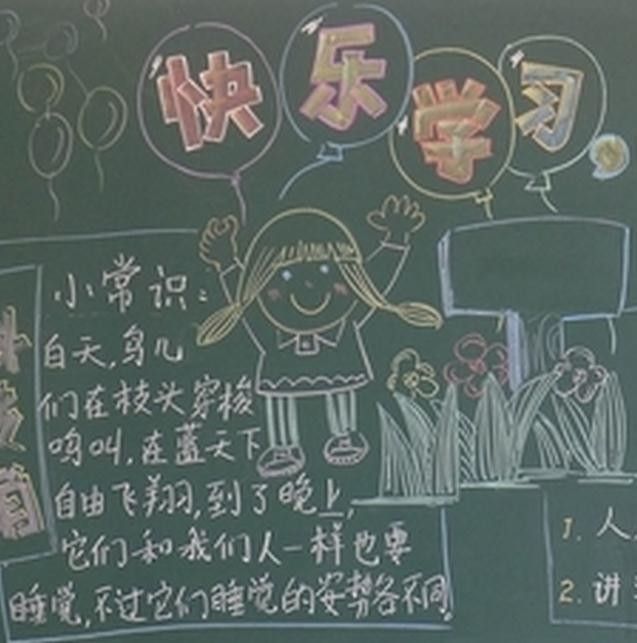 快乐学习
小常识:
白天,鸟儿
们在枝头穿梭
鸣叫,在蓝天下
自由飞翔,到了晚上,
它们和我们人一样也要
睡觉,不过它们睡觉的姿势各不同
1. 人
2. 讲